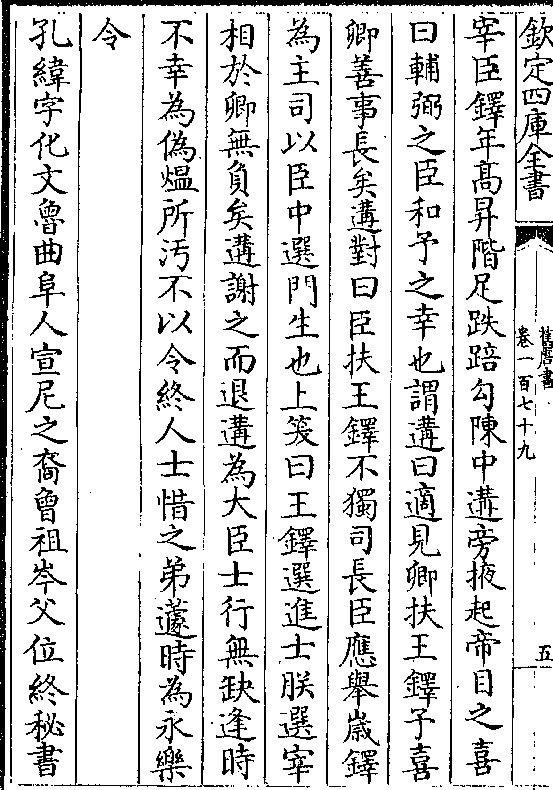 欽定四庫全書
舊唐書
卷一百七十九
五
宰臣鐸年高昇階足跌踣勾陳中遘旁掖起帝目之喜
曰輔弼之臣和予之幸也謂遘曰適見卿扶王鐸予喜
卿善事長矣遘對曰臣扶王鐸不獨司長臣應舉嵗鐸
為主司以臣中選門生也上笑曰王鐸選進士朕選宰
相於卿無負矣遘謝之而退遘為大臣士行無缺逢時
不幸為偽熅所汚不以令終人士惜之弟蘧時為永樂
令
孔緯字化文魯曲阜人宣尼之裔曾祖岑父位終秘書